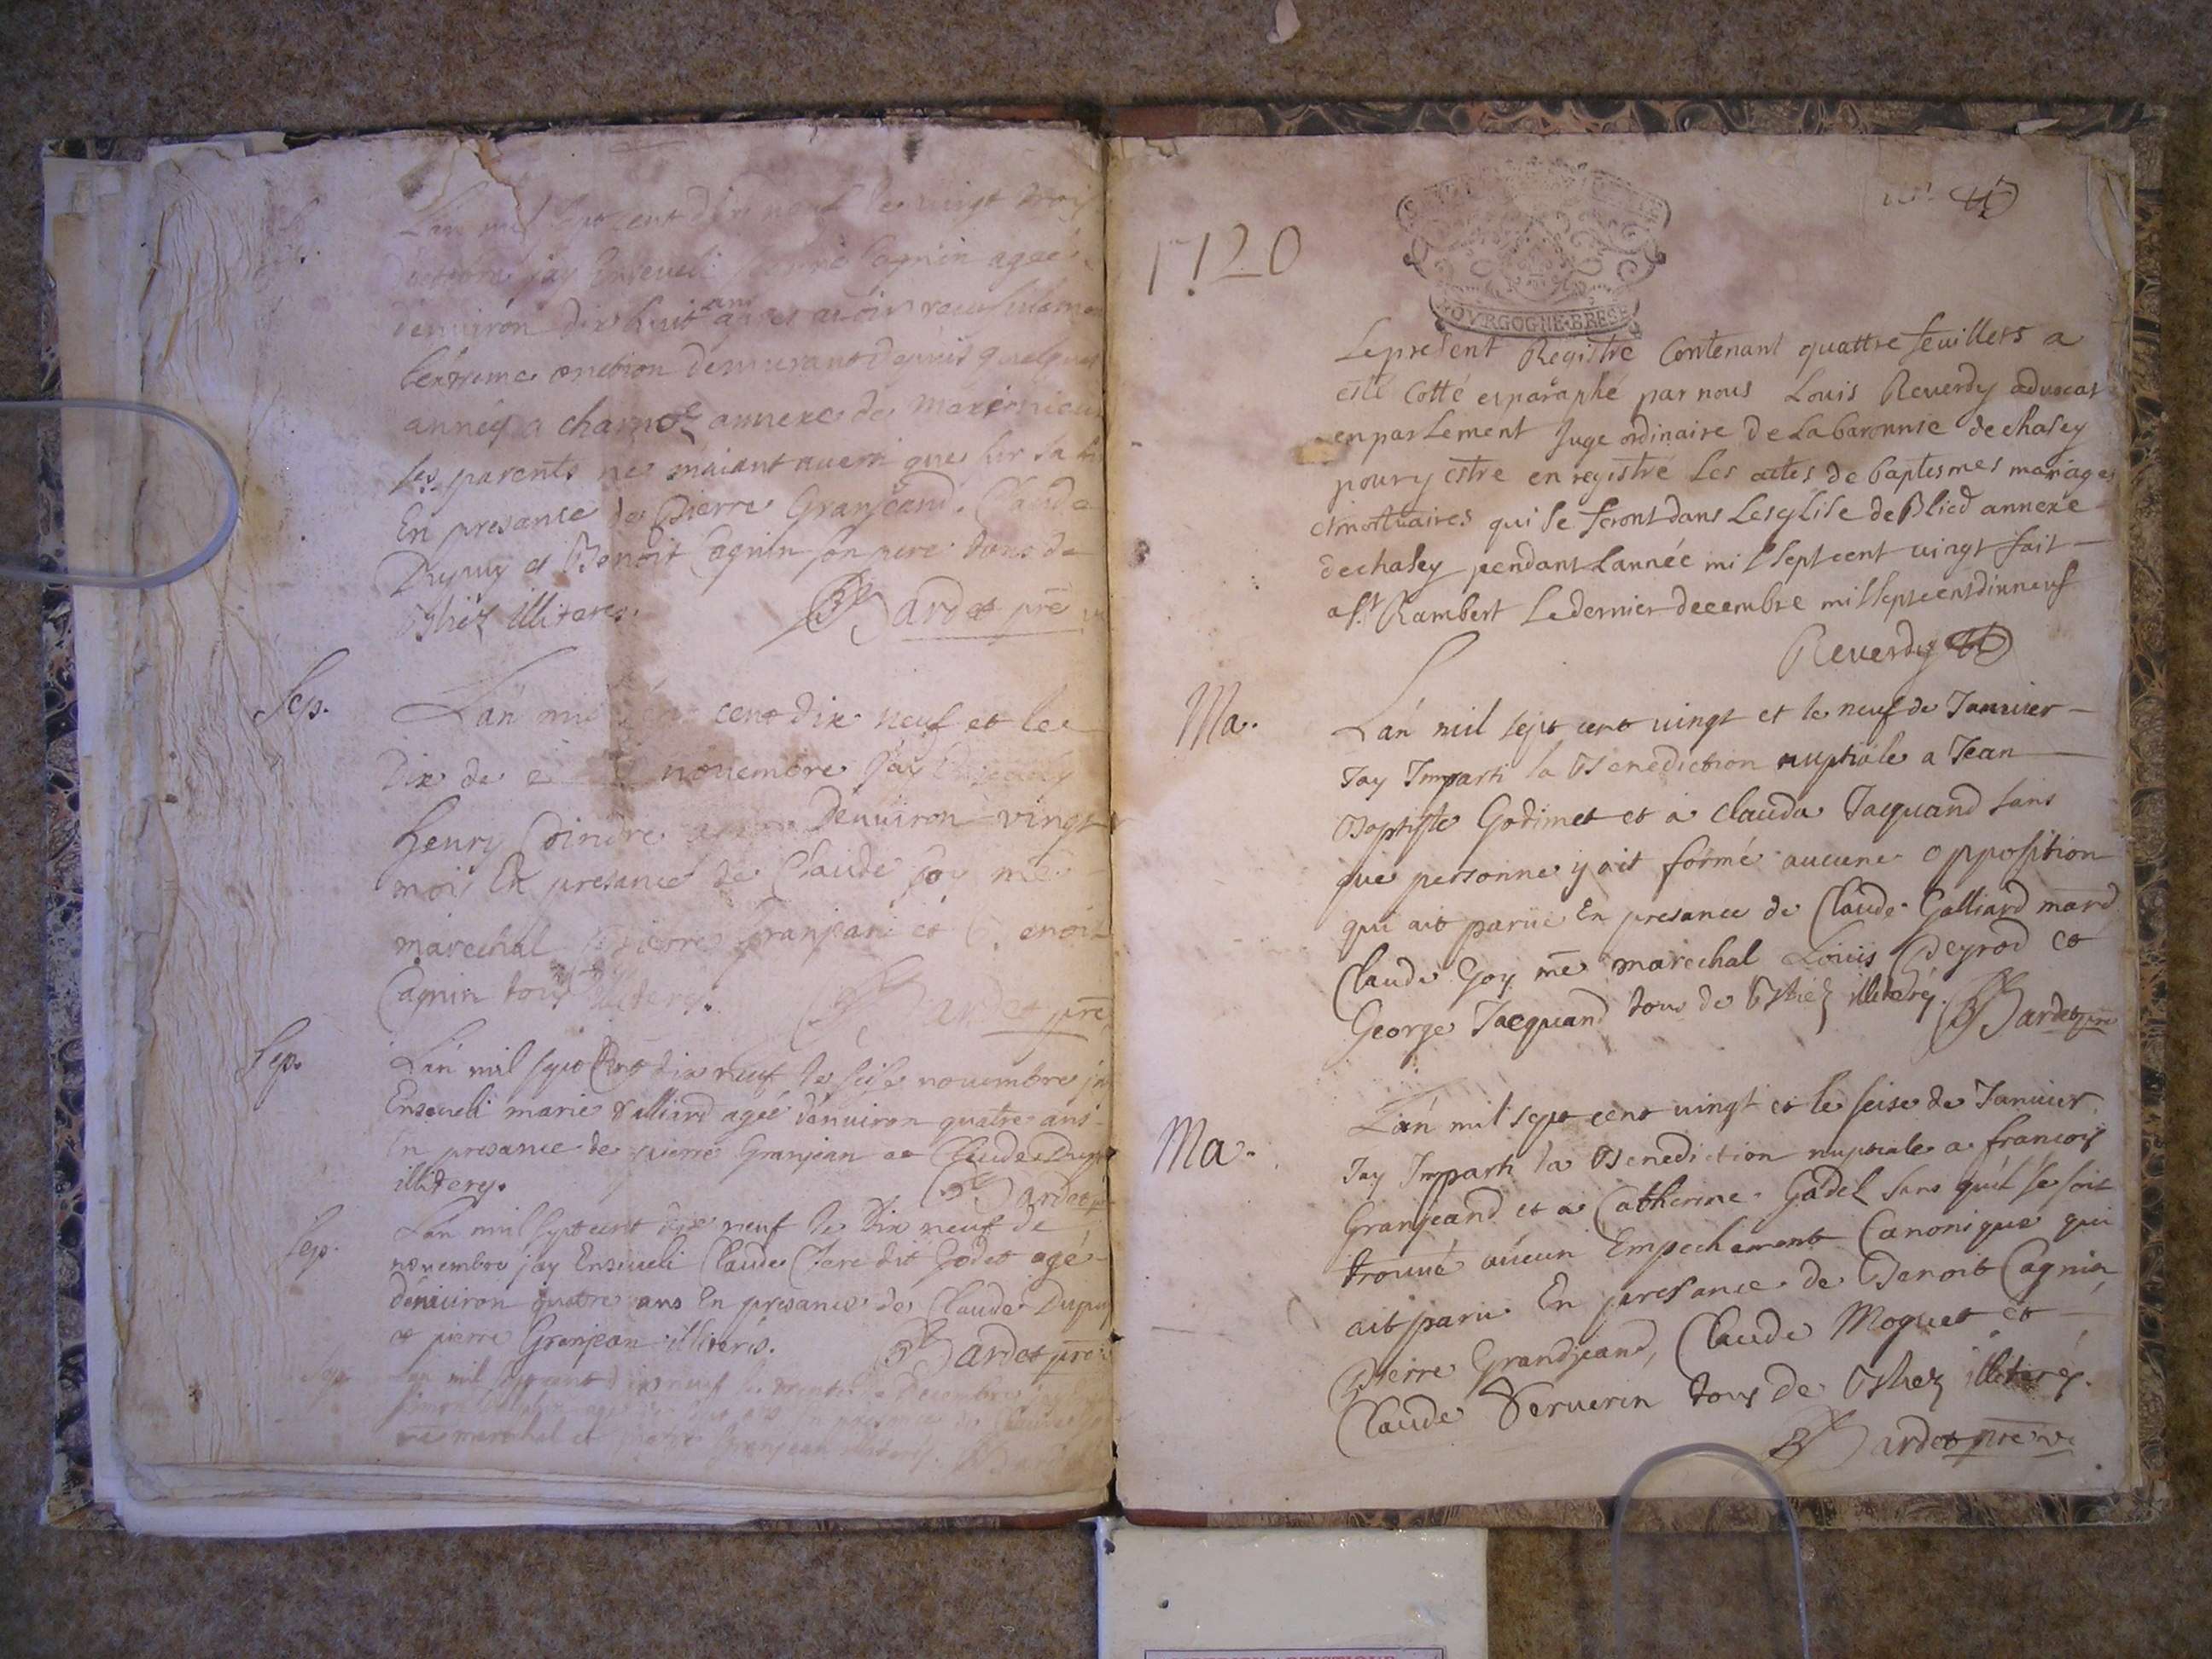 Lan mil sept cent dix neuf le vingt trois
jay Enseueli Cagnin agée
denuiron dix huit ans apres auoir receu
lextreme onction demurant depuis quelques
années a charnoz annexe de Maximieu
ses parents ne maiant auerti que sur la
En presance de Pierre Granjeand. Claude
Dupuy et Benoit Cagnin son pere tous de
Blïez illiteres.
Bardet pre
Sep.
Lan mil sept cent dix neuf et le
dix de nouembre jay
henry Coindre denuiron vingt
mois En presance de Claude Goy me
marechal Pierre Granjean et Benoit
Cagnin tous illiteres.
Bardet pre
Sep.
Lan mil sept cent dix neuf le seise nouembre jay
Enseueli marie Valliard agée denuiron quatre ans
En presance de pierre Granjean et Claude Dupuy
illiterés.
Bardet
Sep.
Lan mil sept cent dix neuf le dix neuf de
nouembre jay Enseueli Claude Clere dit Godet agé
denuiron quatre ans En presance de Claude Dupuy
et pierre Granjean illiterés.
Bardet pre
Sep.
Lan mil sept cent dix neuf le trente de Decembre jay
en presance de Claude Goy
me marechal et pierre Granjean illiterés. Bardet
1720
BOVRGOGNE·BRESSE
Le present Registre Contenant quattre feuillets a
esté Cotté et paraphé par nous Louis Reuerdy aduocat
en parlement Juge ordinaire de la baronnie de chasey
pour y estre enregistré Les actes de baptesmes mariages
et mortuaires qui se feront dans Lesglise de Blied annexe
de chasey pendant Lannée mil sept cent vingt fait
a St. Rambert Le dernier decembre mil sept cent dix neuf
Reuerdy
Ma.
Lan mil sept cent vingt et le neuf de Januier
Jay Imparti la Benediction nuptiale a Jean
Baptiste Godimet et a clauda Jacquand sans
que personne y ait formé aucune opposition
qui ait parüe En presance de Claude Galliard mard
Claude Goy me marechal Louis Peyrod et
George Jacquand tous de Bliez illiterés. Bardet pre
Ma.
Lan mil sept cent vingt et le seise de Januier
Jay Imparti la Benediction nuptiale a francois
Granjeand et a Catherine Gadel sans quil se soit
trouué aucun Empechement Canonique qui
ait paru En presance de Benoit Cagnin
Pierre Grandjeand, Claude Moguet et
Claude Seruerin tous de Bliez illiterés.
Bardet pre